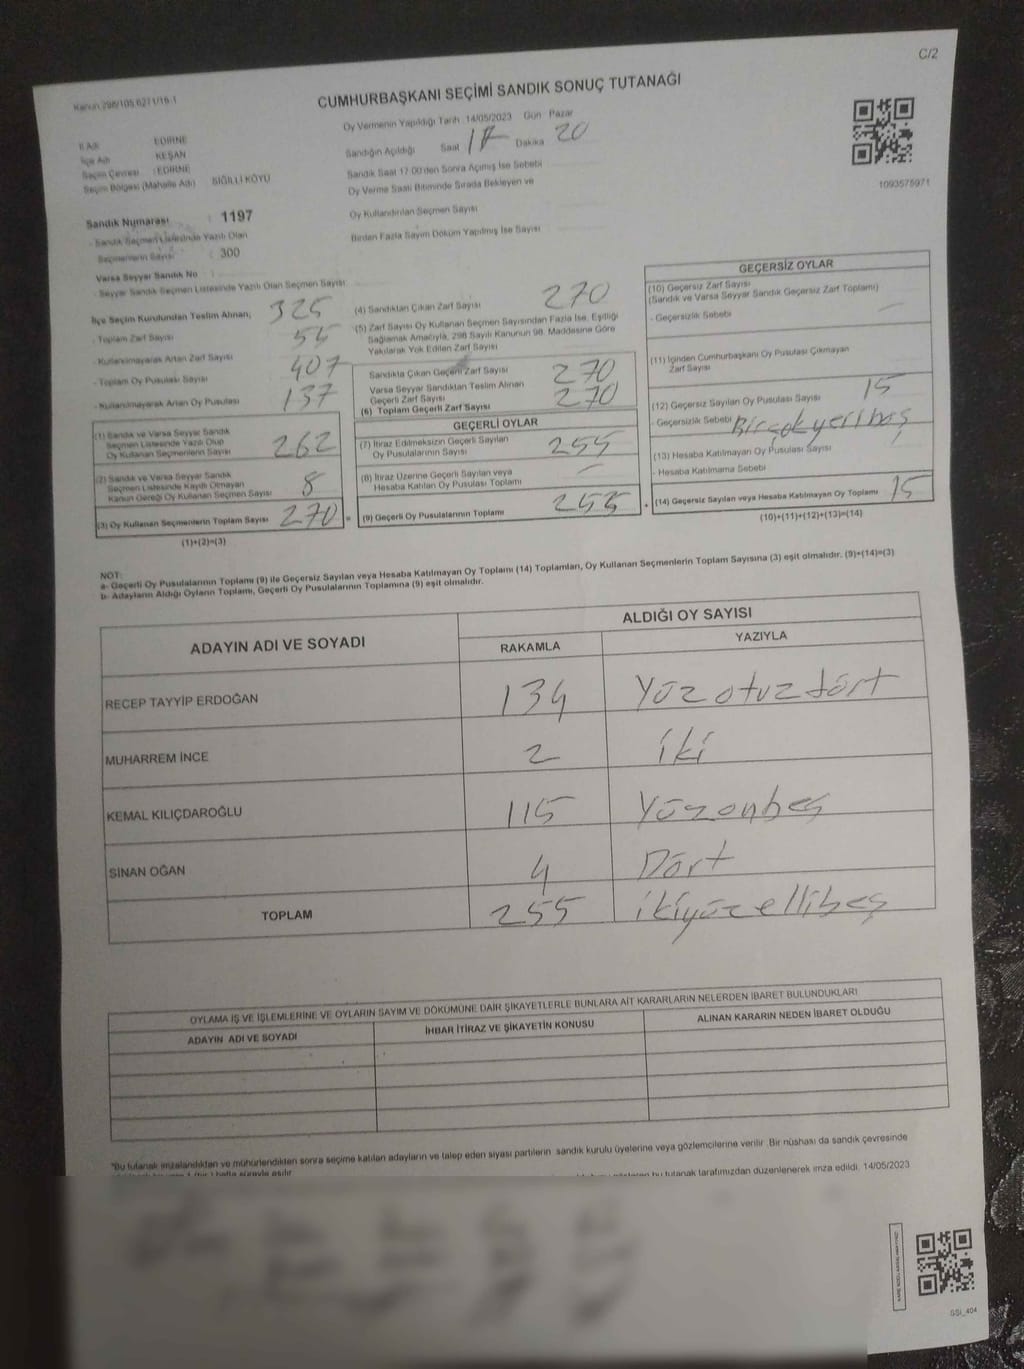 C/2
Kanun 298/105 6271/16-1
CUMHURBAŞKANI SEÇİMİ SANDIK SONUÇ TUTANAĞI
İl Adı EDİRNE
İlçe Adı KEŞAN
Seçim Çevresi : EDİRNE
Seçim Bölgesi (Mahalle Adı) SIĞILLI KÖYÜ
Oy Vermenin Yapıldığı Tarih 14/05/2023 Gün Pazar
Sandığın Açıldığı Saat 17 Dakika 20
Sandık Saat 17.00'den Sonra Açımış İse Sebebi
Oy Verme Saati Bitiminde Sırada Bekleyen ve
Oy Kullandırılan Seçmen Sayısı
Birden Fazla Sayım Döküm Yapılmış İse Sayısı
1093575971
Sandık Numarası : 1197
- Sandık Seçmen Listesinde Yazılı Olan
Seçmenlerin Sayısı : 300
Varsa Seyyar Sandık No
- Seyyar Sandık Seçmen Listesinde Yazılı Olan Seçmen Sayısı
İlçe Seçim Kurulundan Teslim Alınan; 325
- Toplam Zarf Sayısı
- Kullanılmayarak Artan Zarf Sayısı
- Toplam Oy Pusulası Sayısı 407
- Kullanılmayarak Artan Oy Pusulası 137
(1) Sandık ve Varsa Seyyar Sandık
Seçmen Listesinde Yazılı Olup
Oy Kullanan Seçmenlerin Sayısı 262
(2) Sandık ve Varsa Seyyar Sandık
Seçmen Listesinde Kayıtlı Olmayan
Kanun Gereği Oy Kullanan Seçmen Sayısı 8
(3) Oy Kullanan Seçmenlerin Toplam Sayısı 270
(1)+(2)=(3)
(4) Sandıktan Çıkan Zarf Sayısı 270
(5) Zarf Sayısı Oy Kullanan Seçmen Sayısından Fazla İse, Eşitliği
Sağlamak Amacıyla, 298 Sayılı Kanunun 98. Maddesine Göre
Yakılarak Yok Edilen Zarf Sayısı
Sandıkta Çıkan Geçerli Zarf Sayısı 270
Varsa Seyyar Sandıktan Teslim Alınan
Geçerli Zarf Sayısı
(6) Toplam Geçerli Zarf Sayısı 270
GEÇERLİ OYLAR
(7) İtiraz Edilmeksizin Geçerli Sayılan
Oy Pusulalarının Sayısı 255
(8) İtiraz Üzerine Geçerli Sayılan veya
Hesaba Katılan Oy Pusulası Toplamı —
= (9) Geçerli Oy Pusulalarının Toplamı 255
GEÇERSİZ OYLAR
(10) Geçersiz Zarf Sayısı
(Sandık ve Varsa Seyyar Sandık Geçersiz Zarf Toplamı)
- Geçersizlik Sebebi —
(11) İçinden Cumhurbaşkanı Oy Pusulası Çıkmayan
Zarf Sayısı
(12) Geçersiz Sayılan Oy Pusulası Sayısı 15
- Geçersizlik Sebebi Birçok yeri boş
(13) Hesaba Katılmayan Oy Pusulası Sayısı
- Hesaba Katılmama Sebebi
+ (14) Geçersiz Sayılan veya Hesaba Katılmayan Oy Toplamı 15
(10)+(11)+(12)+(13)=(14)
NOT:
a- Geçerli Oy Pusulalarının Toplamı (9) ile Geçersiz Sayılan veya Hesaba Katılmayan Oy Toplamı (14) Toplamları, Oy Kullanan Seçmenlerin Toplam Sayısına (3) eşit olmalıdır. (9)+(14)=(3)
b- Adayların Aldığı Oyların Toplamı, Geçerli Oy Pusulalarının Toplamına (9) eşit olmalıdır.
ADAYIN ADI VE SOYADI
ALDIĞI OY SAYISI
RAKAMLA YAZIYLA
RECEP TAYYİP ERDOĞAN 134 Yüzotuzdört
MUHARREM İNCE 2 iki
KEMAL KILIÇDAROĞLU 115 Yüzonbeş
SİNAN OĞAN 4 Dört
TOPLAM 255 ikiyüzellibeş
OYLAMA İŞ VE İŞLEMLERİNE VE OYLARIN SAYIM VE DÖKÜMÜNE DAİR ŞİKAYETLERLE BUNLARA AİT KARARLARIN NELERDEN İBARET BULUNDUKLARI
ADAYIN ADI VE SOYADI İHBAR İTİRAZ VE ŞİKAYETİN KONUSU ALINAN KARARIN NEDEN İBARET OLDUĞU
*Bu tutanak imzalandıktan ve mühürlendikten sonra seçime katılan adayların ve talep eden siyasi partilerin sandık kurulu üyelerine veya gözlemcilerine verilir. Bir nüshası da sandık çevresinde
bu tutanak tarafımızdan düzenlenerek imza edildi. 14/05/2023
SSI_404